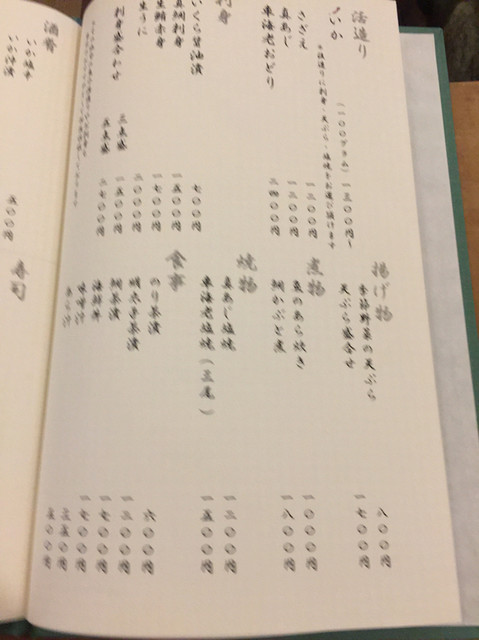 活造り
いか (一〇〇グラム) 一三〇〇円〜
*後造りに刺身・天ぷら・塩焼をお選び頂けます
さざえ 一三〇〇円
真あじ 一二〇〇円
車海老おどり 二四〇〇円
刺身
いくら醤油漬 七〇〇円
真鯛刺身 一五〇〇円
生鮪赤身 一七〇〇円
生うに 二〇〇〇円
刺身盛合わせ 三点盛 一五〇〇円
五点盛 二七〇〇円
揚げ物
季節野菜の天ぷら 八〇〇円
天ぷら盛合せ 一七〇〇円
煮物
魚のあら炊き 一〇〇〇円
鯛かぶと煮 一八〇〇円
焼物
真あじ塩焼 一二〇〇円
車海老塩焼(三尾) 一五〇〇円
食事
のり茶漬 六〇〇円
明太子茶漬 一二〇〇円
鯛茶漬 一七〇〇円
海鮮丼 一七〇〇円
味噌汁 三五〇円
赤だし 五〇〇円
酒肴
いか塩辛
いか沖漬 五〇〇円
寿司